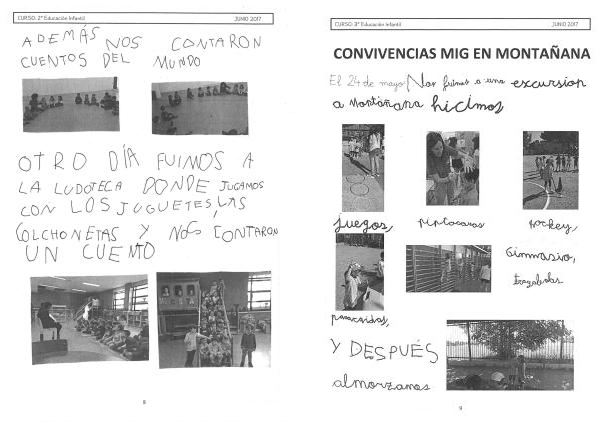 CURSO: 2º Educación Infantil JUNIO 2017
ADEMÁS NOS CONTARON
CUENTOS DEL MUNDO
OTRO DÍA FUIMOS A
LA LUDOTECA DONDE JUGAMOS
CON LOS JUGUETES, LAS
COLCHONETAS Y NOS CONTARON
UN CUENTO
8
CURSO: 3º Educación Infantil JUNIO 2017
CONVIVENCIAS MIG EN MONTAÑANA
El 24 de mayo Nos fuimos a una excursion
a Montañana hicimos
juegos,
hockey,
Gimnasio,
paracaidas,
Y DESPUÉS
almorzamos
9